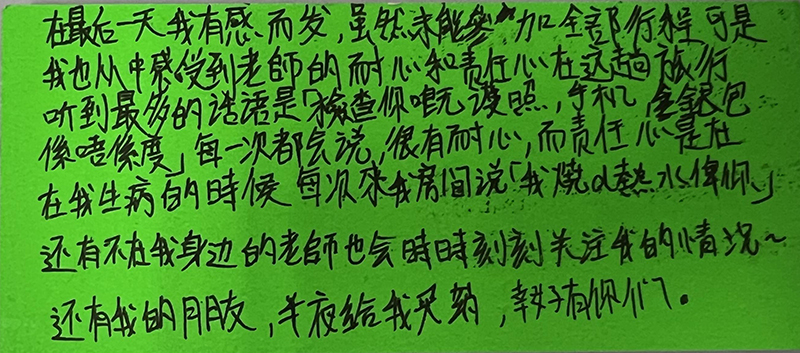 在最后一天我有感而发，虽然未能參加全部行程可是
我也从中感受到老師的耐心和责任心在这趟旅行
听到最多的话语是「檢查你哋既護照，手机，金銀包
係唔係度」每一次都会说，很有耐心，而责任心是在
在我生病的時候每次來我房间说「我燒d熱水俾你」
还有不在我身边的老師也会時時刻刻关注我的情况~
还有我的朋友，半夜给我买药，幸好有你们。